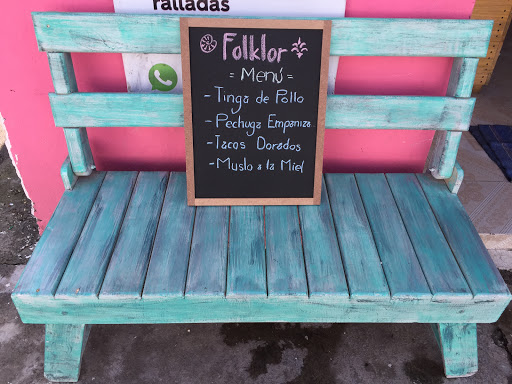 ralladas
Folklor
= Menú =
- Tinga de Pollo
- Pechuga Empaniza
- Tacos Dorados
- Muslo a la Miel